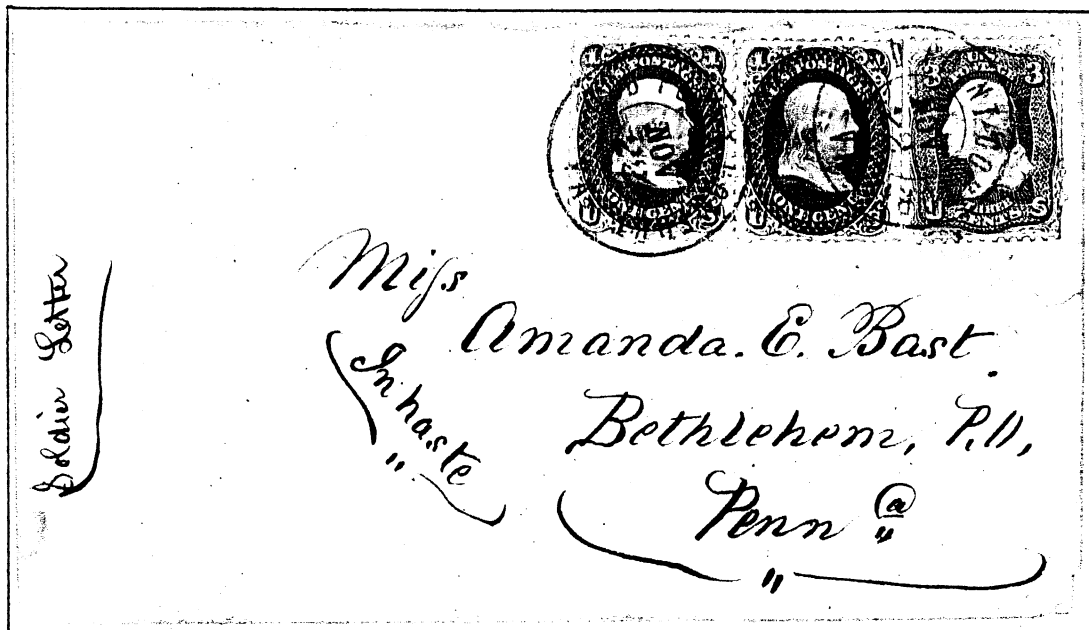 U.S. POSTAGE
ONE CENT
U S
1 1
U.S. POSTAGE
ONE CENT
U S
1 1
3 3
CENTS
U S
NOV
Soldier Letter
Miss
Amanda. E. Bast
In haste
"
Bethlehem, P.O,
Penn a
"